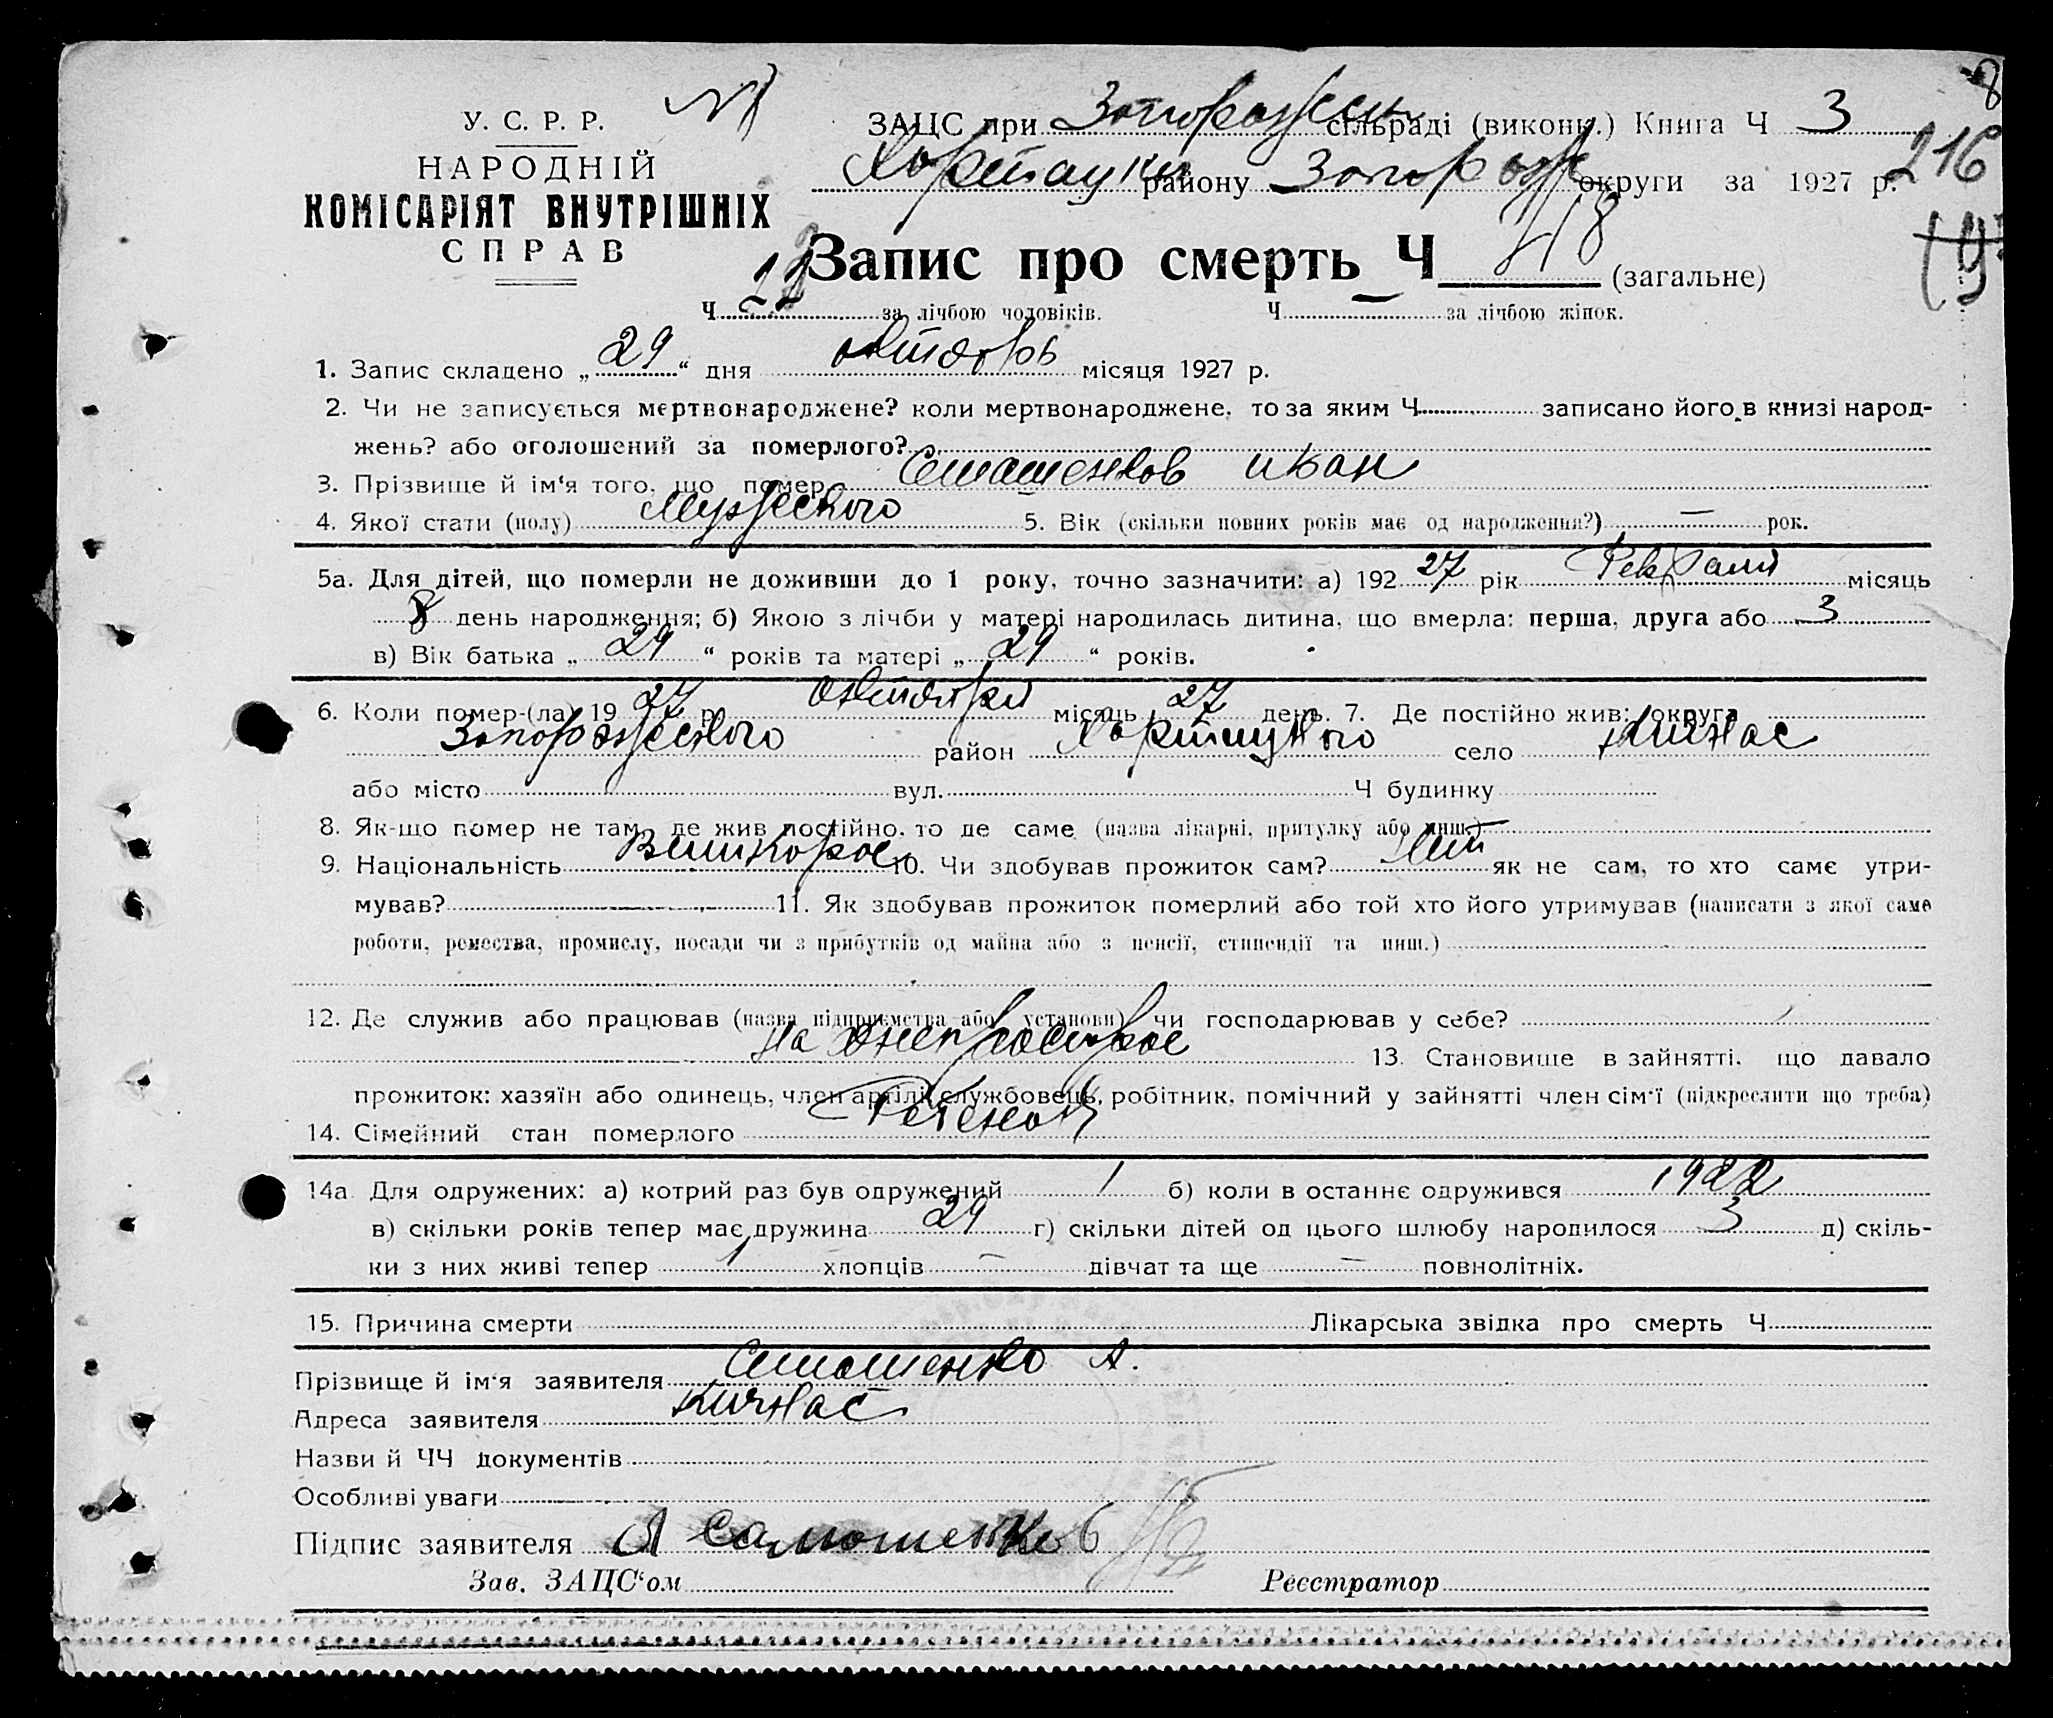 8
У. С. Р. Р.
НАРОДНІЙ
КОМІСАРІЯТ ВНУТРІШНІХ
СПРАВ
ЗАЦС при Запорожск сільраді (виконк.) Книга Ч 3
216
Хортицки району Запорож округи за 1927 р.
Запис про смерть Ч 418 (загальне)
Ч за лічбою чоловіків. Ч — за лічбою жінок.
1. Запис складено „ 29 “ дня октябрь місяця 1927 р.
2. Чи не записується мертвонароджене? коли мертвонароджене, то за яким Ч записано його в книзі народ-
жень? або оголошений за померлого?
3. Прізвище й ім‘я того, що помер Сташенков иван
4. Якої стати (полу) Мужеского 5. Вік (скільки повних років має од народження?) — рок.
5а. Для дітей, що померли не доживши до 1 року, точно зазначити: а) 192 27 рік Февраля місяць
8 день народження; б) Якою з лічби у матері народилась дитина, що вмерла: перша, друга або 3
в) Вік батька „ 29 “ років та матері „ 29 “ років.
6. Коли помер-(ла) 19 27 р. октября місяць 27 день. 7. Де постійно жив: округа
Запорожского район Хортицкого село Кичкас
або місто вул. Ч будинку
8. Як-що помер не там, де жив постійно, то де саме (назва лікарні, притулку або инш.)
9. Національність Великорос 10. Чи здобував прожиток сам? Нет як не сам, то хто самє утри-
мував? 11. Як здобував прожиток померлий або той хто його утримував (написати з якої саме
роботи, ремества, промислу, посади чи з прибутків од майна або з пенсії, стипендії та инш.)
12. Де служив або працював (назва підприємства або установи) чи господарював у себе?
На Днепрострое 13. Становище в зайнятті, що давало
прожиток: хазяїн або одинець, член артілі, службовець, робітник, помічний у зайнятті член сім‘ї (підкреслити що треба)
14. Сімейний стан померлого Ребенок
14а Для одружених: а) котрий раз був одружений 1 б) коли в останнє одружився 1922
в) скільки років тепер має дружина 29 г) скільки дітей од цього шлюбу народилося 3 д) скіль-
ки з них живі тепер 1 хлопців — дівчат та ще — повнолітніх.
15. Причина смерти Лікарська звідка про смерть Ч
Прізвище й ім‘я заявителя Сташенко А.
Адреса заявителя Кичкас
Назви й ЧЧ документів
Особливі уваги
Підпис заявителя А
Зав. ЗАЦС‘ом Реєстратор